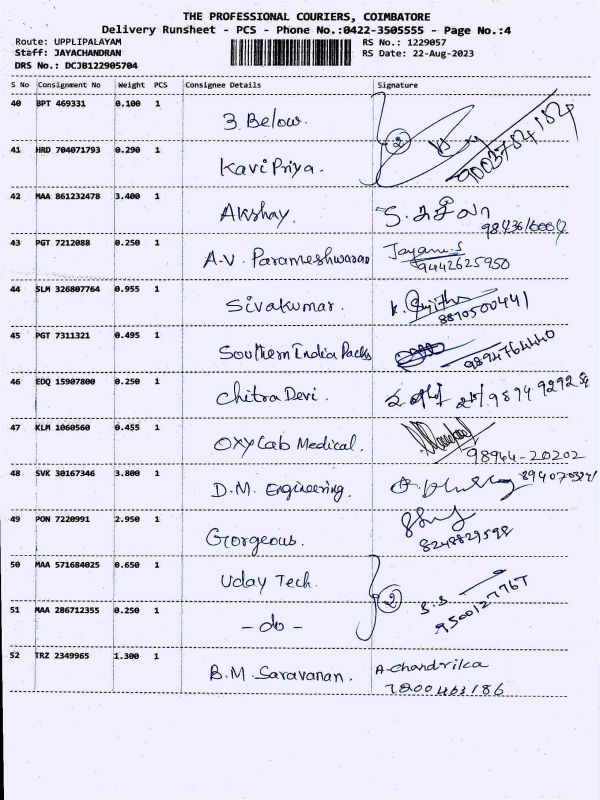 THE PROFESSIONAL COURIERS, COIMBATORE
Delivery Runsheet - PCS - Phone No.:0422-3505555 - Page No.:4
Route: UPPLIPALAYAM RS No.: 1229057
Staff: JAYACHANDRAN RS Date: 22-Aug-2023
DRS No.: DCJB122905704
S No Consignment No Weight PCS Consignee Details Signature
40 BPT 469331 0.100 1 3 Below. 2 9003784182
41 HRD 704071793 0.290 1 Kavi Priya.
42 MAA 861232478 3.400 1 Akshay.
43 PGT 7212088 0.250 1 A.V. Parameshwaran Jayam.S
9442625950
44 SLM 326807764 0.955 1 Sivakumar.
8870500441
45 PGT 7311321 0.495 1 Southern India Packs 9894764440
46 EDQ 15907800 0.250 1 Chitra Devi.
47 KLM 1060560 0.455 1 OXY Lab Medical. 98944-20202
48 SVK 30167346 3.800 1 D.M. Engineering.
49 PON 7220991 2.950 1 Gorgeous.
8248829598
50 MAA 571684025 0.650 1 Uday Tech.
2 S.S 9500127767
51 MAA 286712355 0.250 1 - do -
52 TRZ 2349965 1.300 1 B.M. Saravanan. A-Chandrika